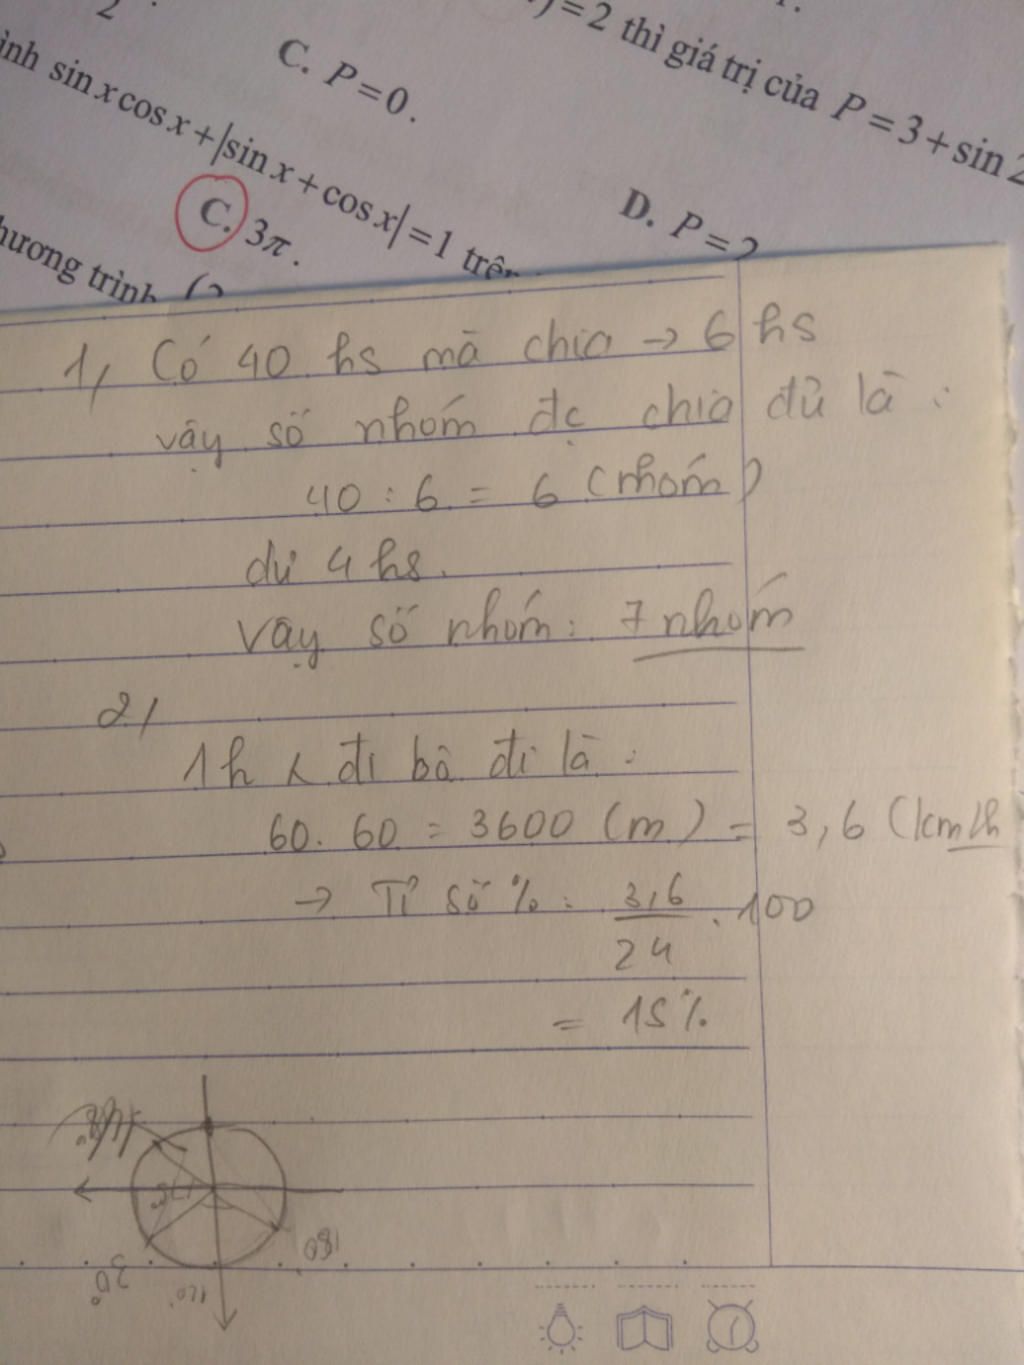 2
C. P = 0.
) = 2 thì giá trị của P = 3 + sin 2
ình sin x cos x + |sin x + cos x| = 1 trên
C. 3π.
D. P = 2
hương trình (2
1, Có 40 hs mà chia → 6 hs
vậy số nhóm đc chia đủ là :
40 : 6 = 6 (nhóm)
dư 4 hs.
Vậy số nhóm: 7 nhóm
2/
1h đi bộ đi là :
60. 60 = 3600 (m) = 3,6 (km/h
→ Tỉ số % : 3,6/24 . 100
= 15%
180
30°
120°